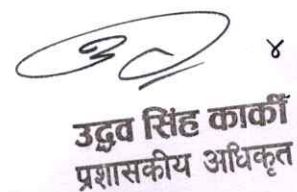 ४
उद्धव सिंह कार्की
प्रशासकीय अधिकृत